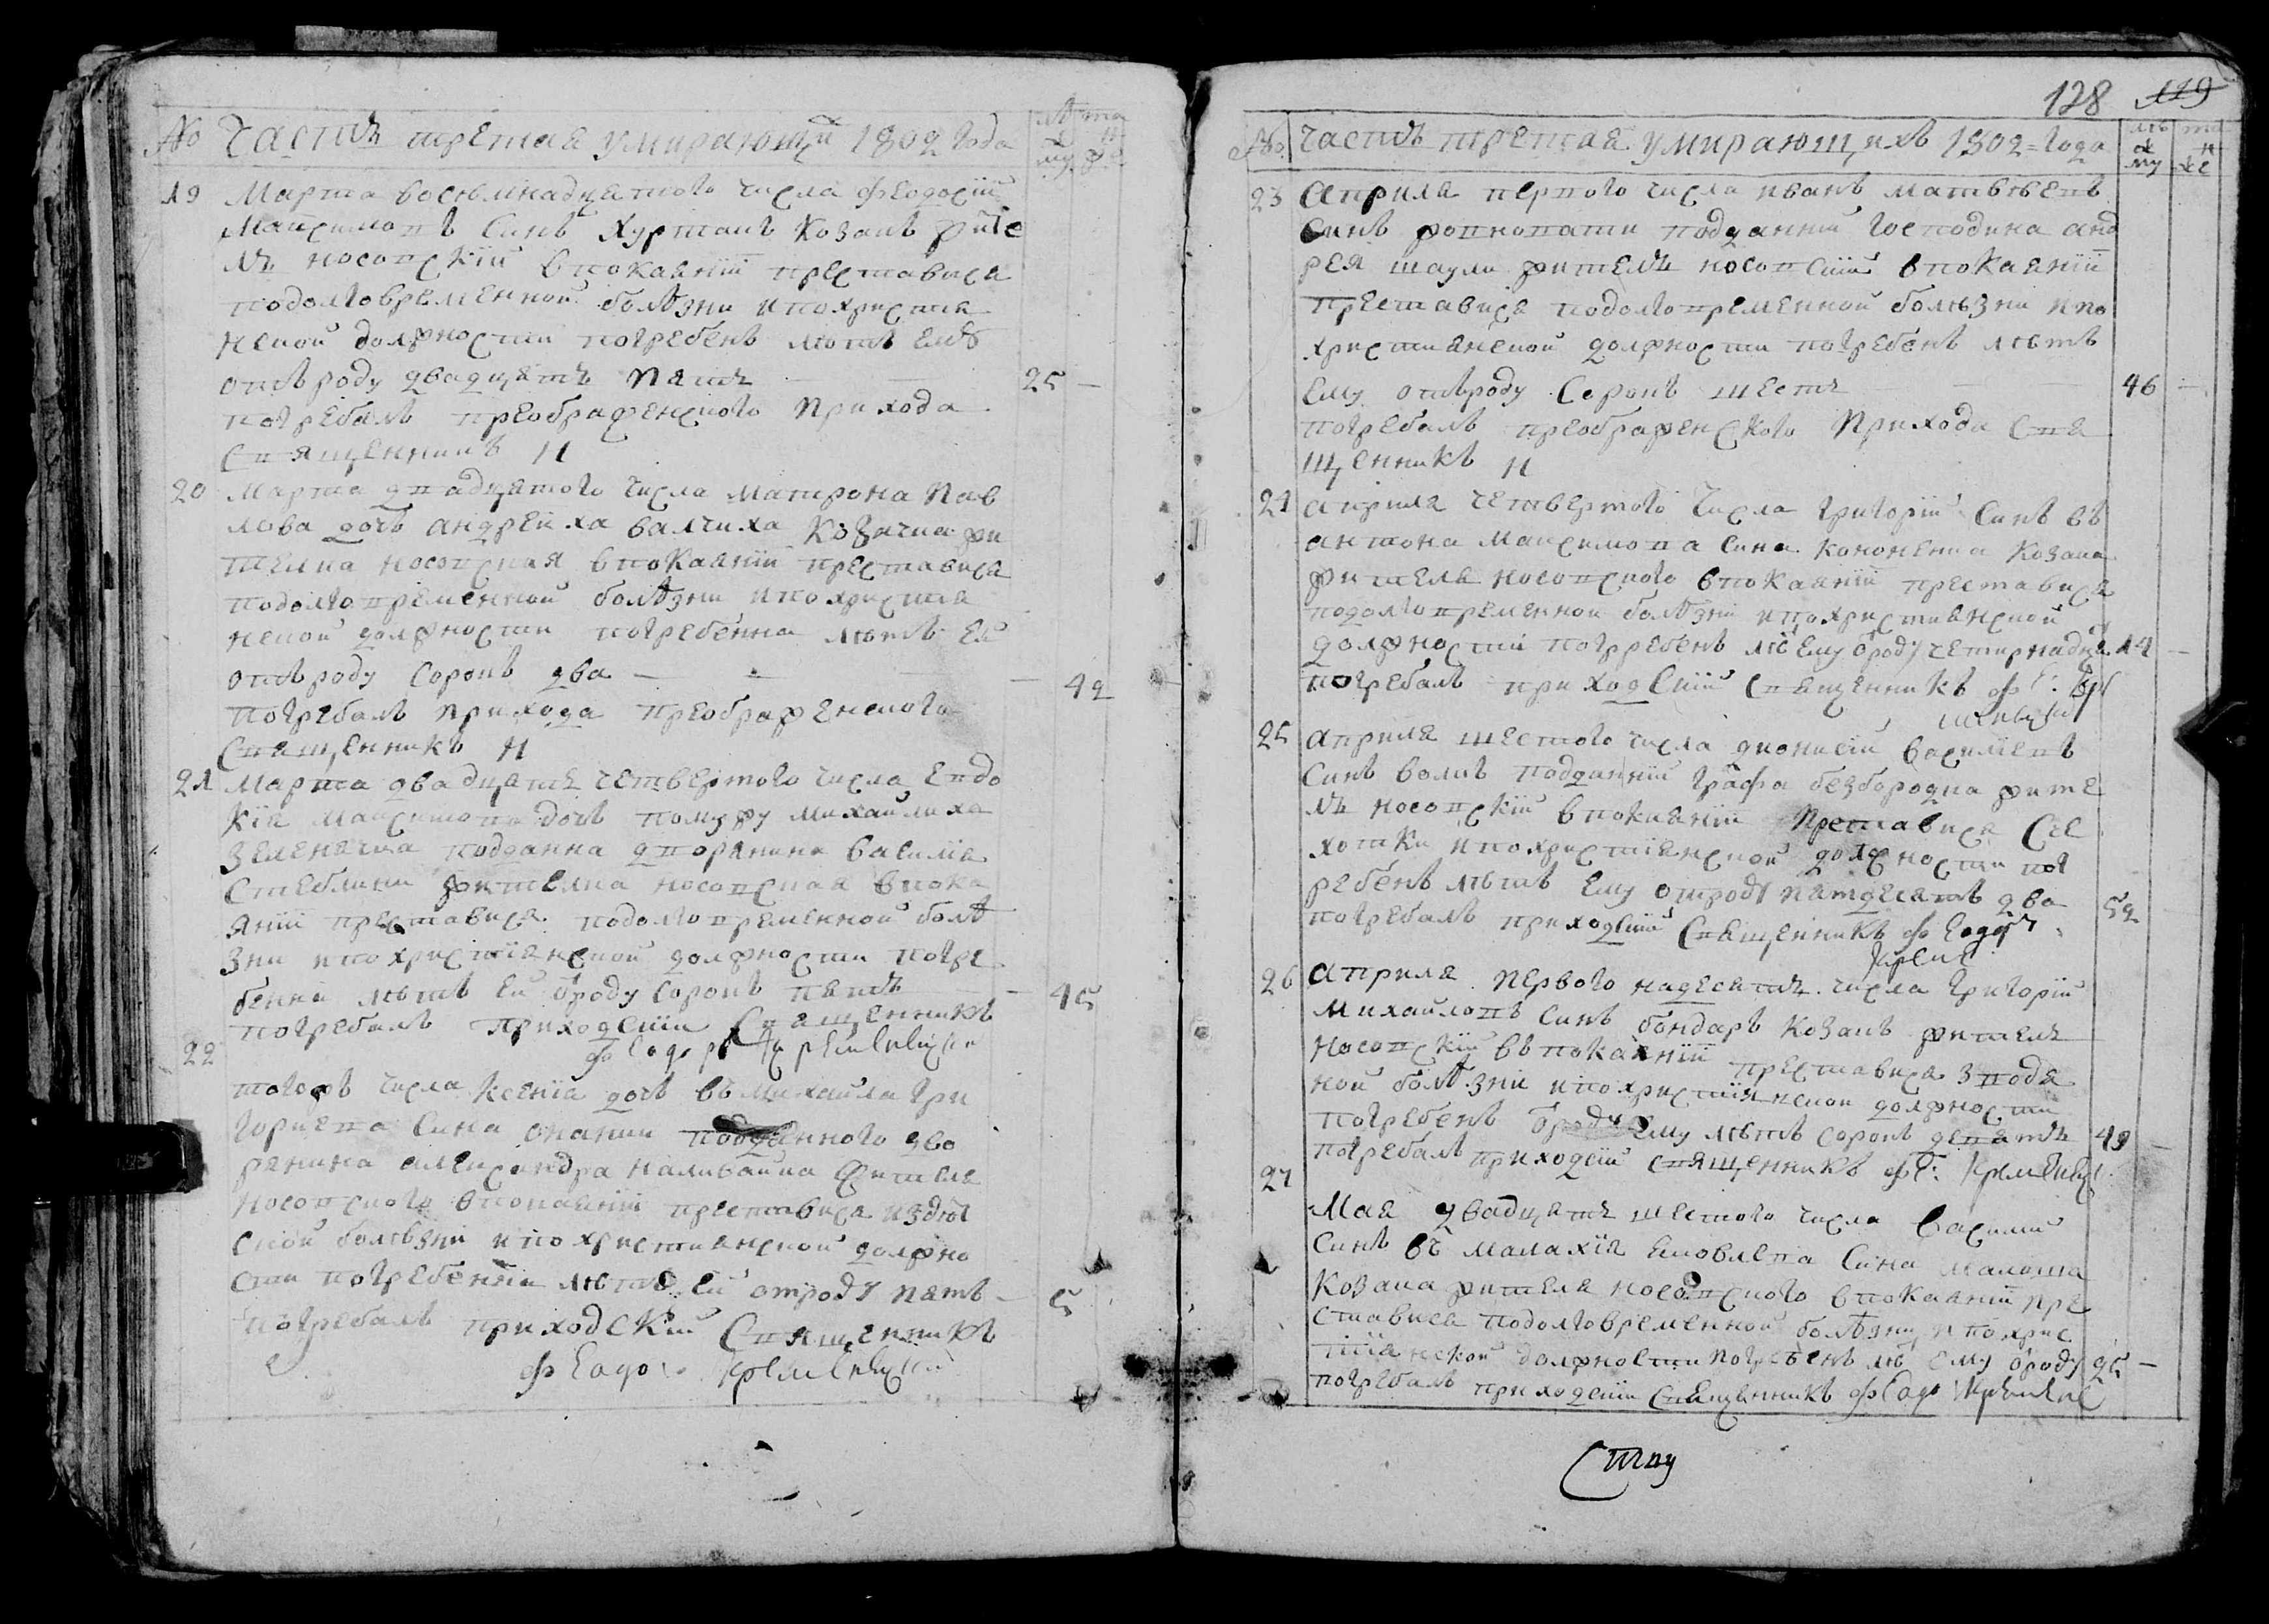 № Часть третая умирающих 1802 года
лѣ та
му же
19 Марта восемнадцатого числа феодосій
Максимовъ Синъ Хурманъ Козакъ жите
ль носовскій впокаяніи преставися
подолговременной болѣзни и похристия
нской должности погребенъ лѣтъ ему
отъ роду двадцять пять 25 —
погребалъ преображенского прихода
Священникъ И
20 Марта двадцятого числа Матрона Пав
лова дочь андреиха валчиха Козачка жи
телка носовская впокаяніи преставися
подолговременной болѣзни и похристия
нской должности погребенна лѣтъ ей
отъ роду сорокъ два — 42
погребалъ прихода преображенского
Священникъ И
21 Марта двадцять четвертого числа Евдо
кія Максимова дочь помужу михайлиха
Зеленячка подданна дворянина василия
Стеблини жителка носовская впока
яніи преставися подолговременной болѣ
зни и похристиянской должности погре
бенна лѣтъ ей ѿроду сорокъ пять — 45
погребалъ приходскій Священникъ
феодоръ
22
тогожъ числа Ксенія дочь въ михайла гри
горієва Сина онанки подданного дво
рянина александра наливайка жителя
носовского впокаяніи преставися
ской болѣзни и похристиянской должно
сти погребенна лѣтъ ей отроду пять — 5
погребалъ приходскій Священникъ
феодо

128 129
№ Часть третая умирающихъ 1802 = года
лѣ та
му же
23 Априля первого числа иванъ матвѣевъ
Синъ подданній господина анд
рея шаули житель носовскій впокаяніи
преставися подолговременной болѣзни и по
християнской должности погребенъ лѣтъ
ему отъ роду сорокъ шесть 46 —
погребалъ преображенского прихода Свя
щенникъ И
24 априля четвертого числа григорій Синъ въ
антона Максимова сина кононенка козака
жителя носовского впокаяніи преставися
подолговременной болѣзни и похристиянской
должности погрребенъ лѣ ему ѿроду четирнадца 14 —
погребалъ приходскій священникъ фе:
25 априля шестого числа дионисій василієвъ
Синъ волкъ подданній графа безбородка жите
ль носовскій впокаяніи преставися Сче
хотки и похристиянской должности пог
ребенъ лѣтъ ему отроду пятдесятъ два 52
погребалъ приходскій Священникъ феодоръ
26 Априля первого надесять числа григорій
Михайловъ синъ бондаръ Козакъ житель
носовскій въпокаяніи преставися зводя
ной болѣзни и похристиянской должности
погребенъ ѿроду ему лѣтъ сорокъ девять 49 —
погребалъ приходскій священникъ фе:
27
Мая двадцять шестого числа василій
синъ въ малахія Сина
Козака жителя носовского впокаяніи пре
ставися подолговременной болѣзни и похрис
тиянской должности погребенъ лѣ ему ѿроду 25 —
погребалъ приходскій священникъ феодо